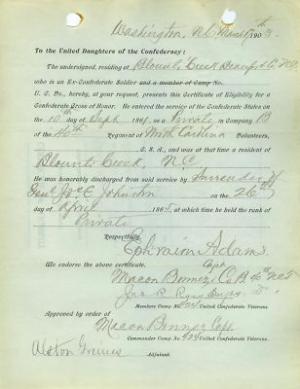 Washington, N.C. March 17th 1903.
To the United Daughters of the Confederacy:
The undersigned, residing at Blounts Creek Beaufort Co NC,
who is an Ex-Confederate Soldier and a member of Camp No.
U. C. Vs., hereby, at your request, presents this Certificate of Eligibility for a
Confederate Cross of Honor. He entered the service of the Confederate States on
the 10th of Sept 1861, as a Private, in Company B
of the 40th Regiment of North Carolina Volunteers,
C. S. A., and was at that time a resident of
Blounts Creek, N.C.
He was honorably discharged from said service by Surrender of
Genl Jos E Johnston on the 26th
day of April 1865, at which time he held the rank of
Private
Respectfully,
Ephraim Adams
We endorse the above certificate.
Capt
Macon Bonner Co B 40 NCT
Members Camp No. 424 United Confederate Veterans.
Approved by order of
Macon Bonner Capt
Commander Camp No. 424 United Confederate Veterans.
Alston Grimes Adjutant.